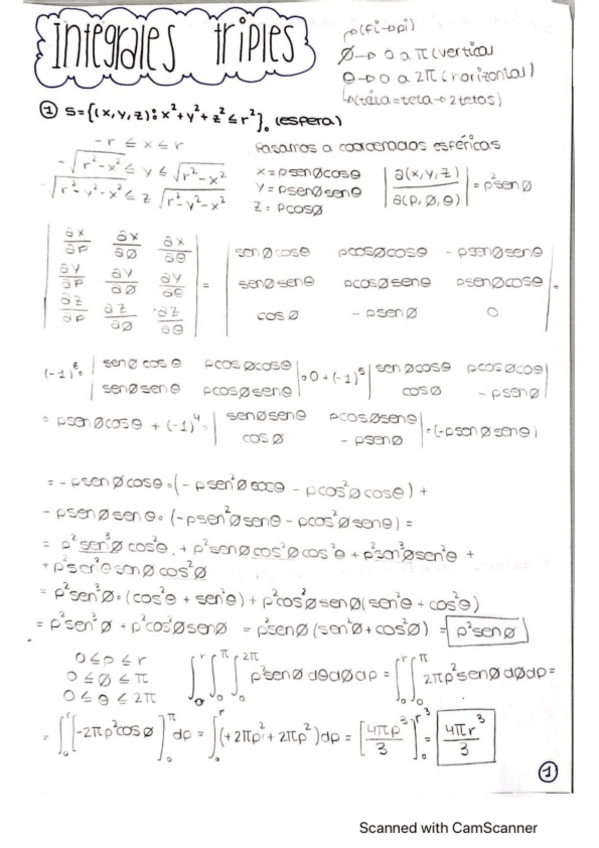 Integrales triples
(fi→pi)
Ø→ 0 a π (vertical
θ→ 0 a 2π (horizontal)
(téta=teta→2tetas)
① S={(x,y,z): x²+y²+z² ≤ r²}. (esfera)
-r ≤ x ≤ r
-√(r²-x²) ≤ y ≤ √(r²-x²)
-√(r²-y²-x²) ≤ z √(r²-y²-x²)
Pasamos a coordenadas esféricas
x = ρsenØcosθ
y = ρsenØsenθ
z = ρcosØ
|∂(x,y,z)/∂(ρ,Ø,θ)| = ρ²senØ
|∂x/∂ρ ∂x/∂Ø ∂x/∂θ|
|∂y/∂ρ ∂y/∂Ø ∂y/∂θ| =
|∂z/∂ρ ∂z/∂Ø ∂z/∂θ|
|senØcosθ ρcosØcosθ -ρsenØsenθ|
|senØsenθ ρcosØsenθ ρsenØcosθ| =
|cosØ -ρsenØ 0|
(-1)⁶· |senØ cosθ ρcosØcosθ| ·0+(-1)⁵ |senØcosθ ρcosØcosθ|
|senØsenθ ρcosØsenθ| |cosØ -ρsenØ|
· ρsenØcosθ + (-1)⁴· |senØsenθ ρcosØsenθ| ·(-ρsenØsenθ)
|cosØ -ρsenØ|
= -ρsenØcosθ·(-ρsen²Øcosθ - ρcos²Øcosθ) +
-ρsenØsenθ·(-ρsen²Øsenθ - ρcos²Øsenθ) =
= ρ²sen³Øcos²θ + ρ²senØcos²Øcos²θ + ρ²sen³Øsen²θ +
+ρ²sen²θsenØcos²Ø
= ρ²sen³Ø·(cos²θ + sen²θ) + ρ²cos²ØsenØ(sen²θ + cos²θ)
= ρ²sen³Ø + ρ²cos²ØsenØ = ρ²senØ(sen²Ø+cos²Ø) = ρ²senØ
0≤ρ≤r
0≤Ø≤π
0≤θ≤2π
∫₀^r ∫₀^π ∫₀^2π ρ²senØ dθdØdρ = ∫₀^r ∫₀^π 2πρ²senØ dØdρ =
= ∫₀^r [-2πρ²cosØ]₀^π dρ = ∫₀^r (+2πρ²+2πρ²)dρ = [4πρ³/3]₀^r = 4πr³/3
①
Scanned with CamScanner